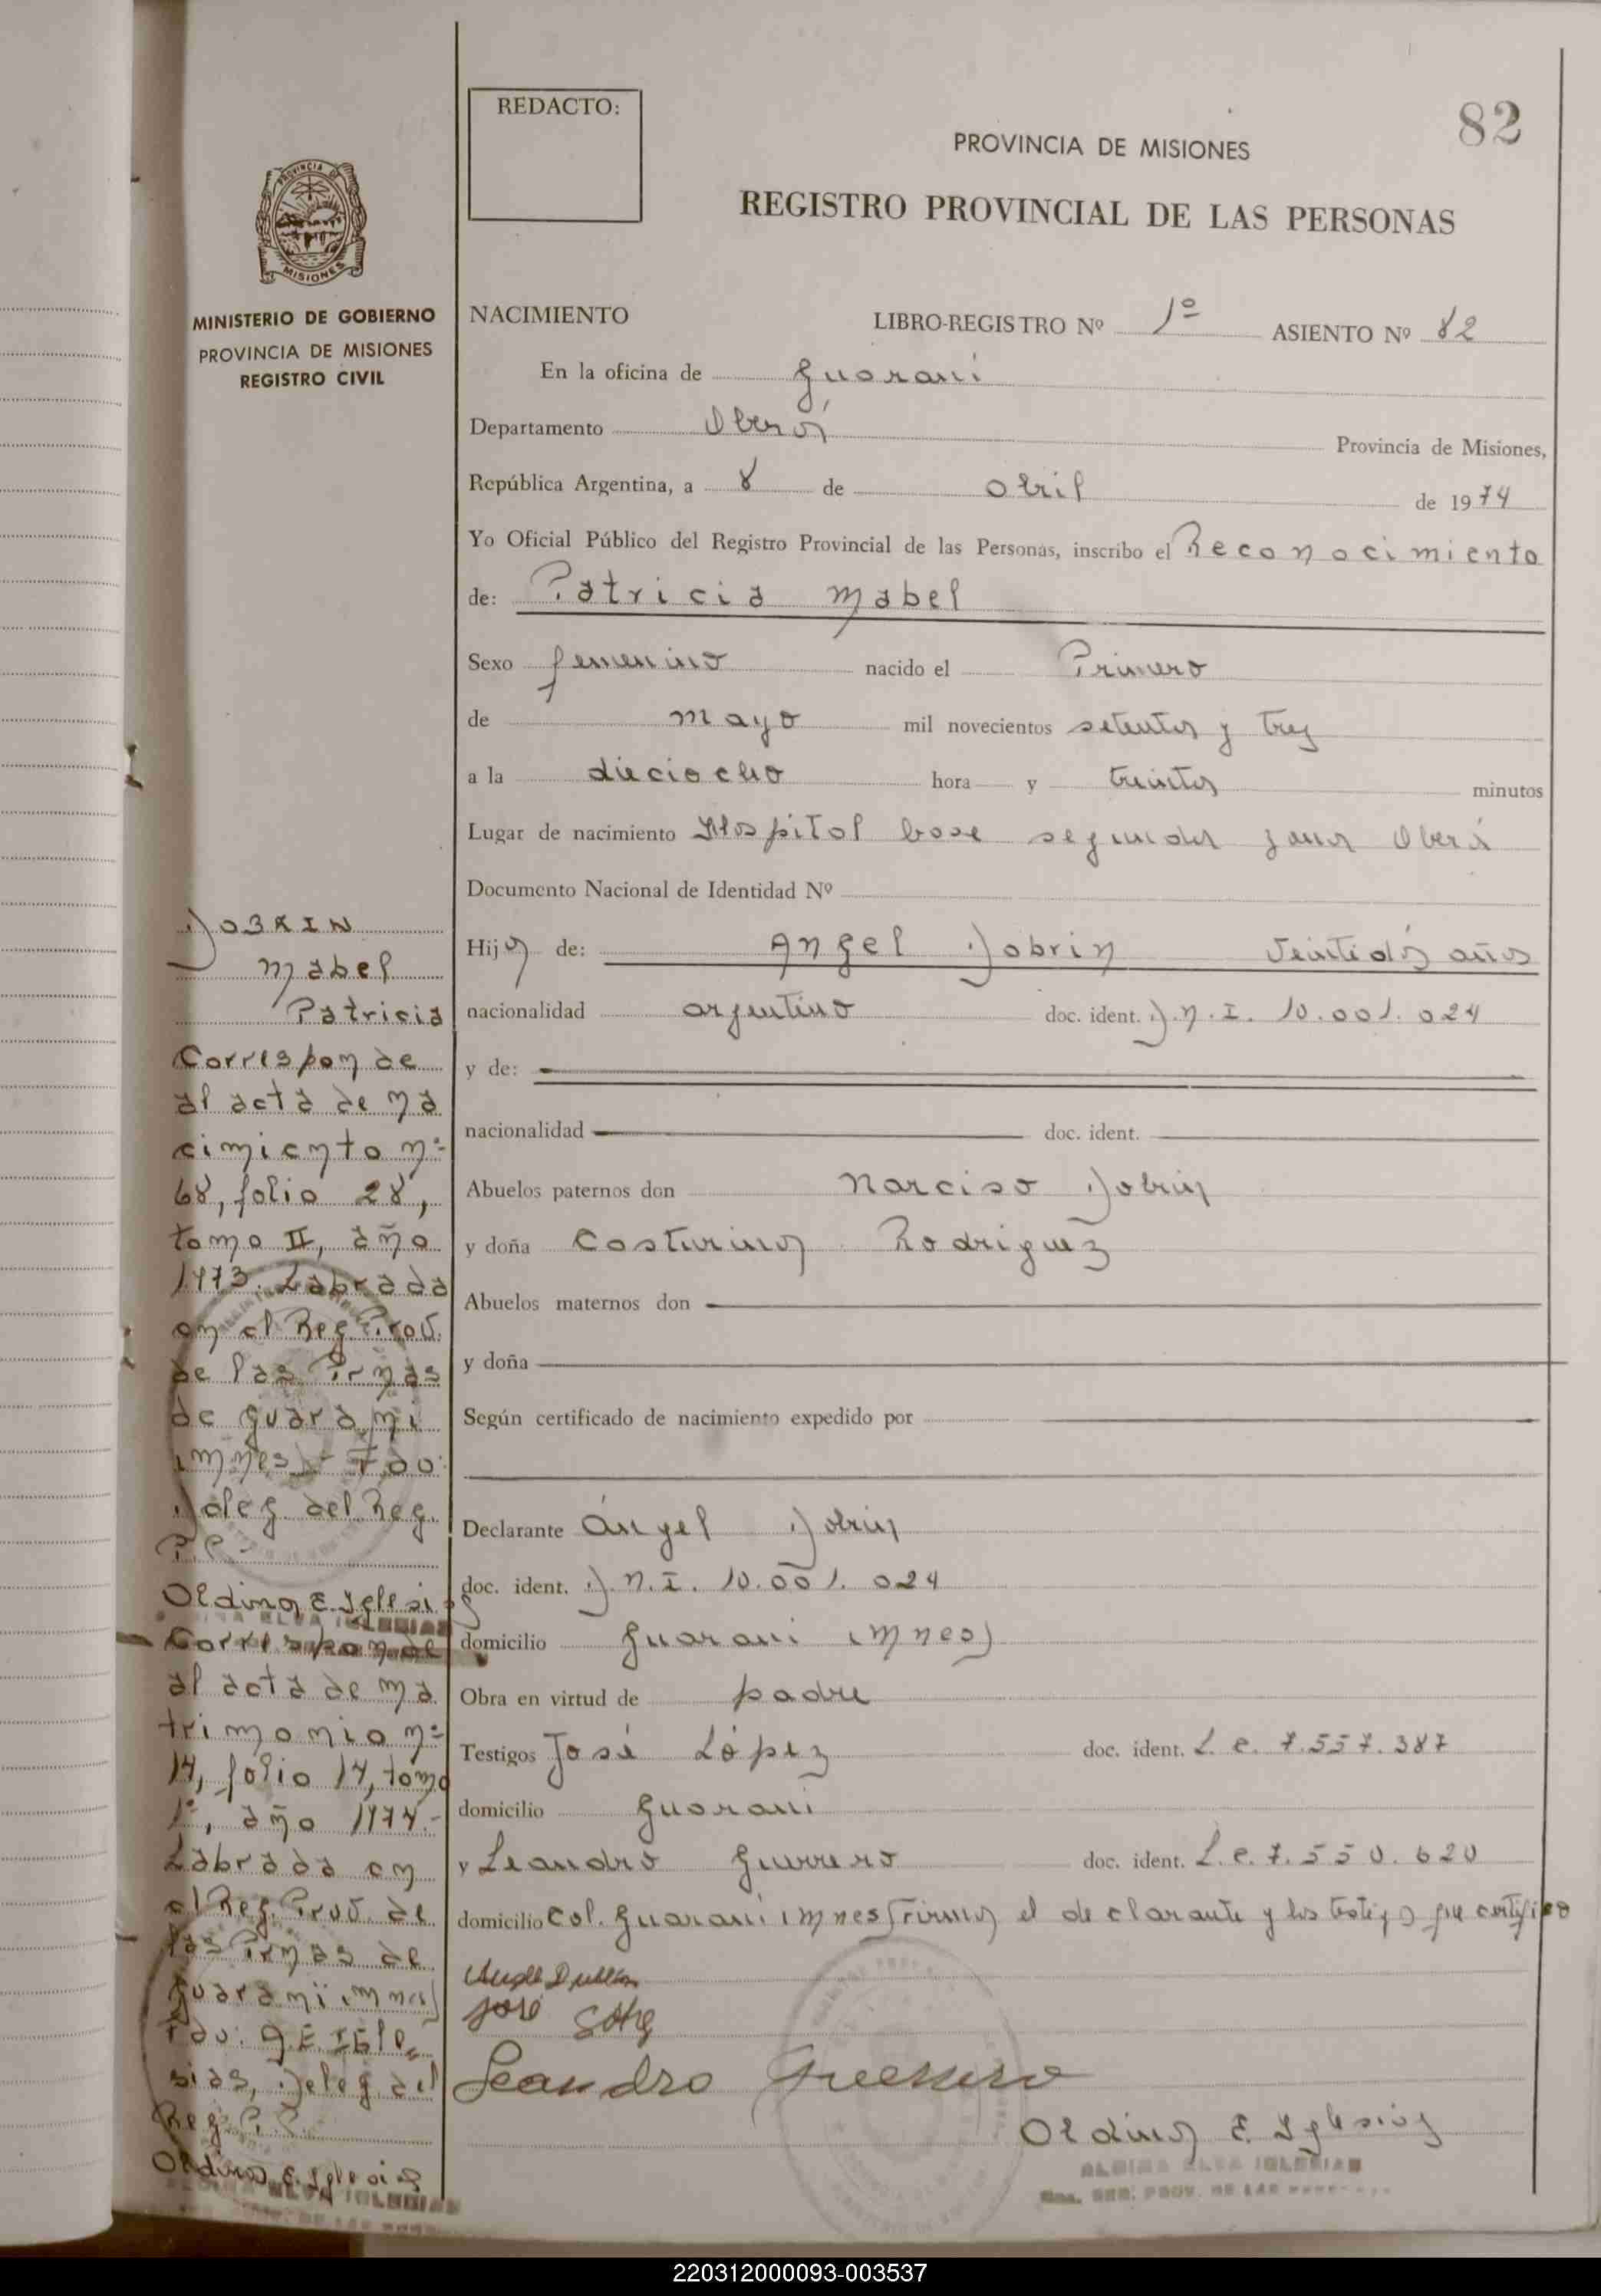 REDACTO:
82
PROVINCIA DE MISIONES
REGISTRO PROVINCIAL DE LAS PERSONAS
PROVINCIA DE
MISIONES
MINISTERIO DE GOBIERNO
PROVINCIA DE MISIONES
REGISTRO CIVIL
NACIMIENTO LIBRO-REGISTRO Nº 1º ASIENTO Nº 82
En la oficina de Guarani
Departamento Oberá Provincia de Misiones,
República Argentina, a 8 de abril de 1974
Yo Oficial Público del Registro Provincial de las Personas, inscribo el Reconocimiento
de: Patricia Mabel
Sexo femenino nacido el Primero
de mayo mil novecientos setenta y tres
a la dieciocho hora y treinta minutos
Lugar de nacimiento Hospital base segunda zona Oberá
Documento Nacional de Identidad Nº
Hija de: Angel Dobrin veintidós años
nacionalidad argentino doc. ident. D.N.I. 10.001.024
y de:
nacionalidad doc. ident.
Abuelos paternos don Narciso Dobrin
y doña Casturina Rodriguez
Abuelos maternos don
y doña
Según certificado de nacimiento expedido por
Declarante Ángel Dobrin
doc. ident. D.N.I. 10.001.024
domicilio Guarani (mnes)
Obra en virtud de padre
Testigos José López doc. ident. L.e. 7.557.387
domicilio Guarani
y Leandro Guerrero doc. ident. L.e. 7.550.620
domicilio Col. Guarani (mnes) Firman el declarante y los testigos que certifico
José
Leandro Guerrero
Oldina E. Iglesias
ALDINA ELVA IGLESIAS
DOBRIN
Mabel
Patricia
Correspon de
al acta de na
cimiento nº
68, folio 28,
tomo II, año
1973. Labrada
en el Reg. Prov.
de las Prnas
de Guarani
(mnes)- Fdo:
Deleg. del Reg.
P.P.-
Oldina E. Iglesias
ELVA IGLESIAS
Corresponde
al acta de ma
trimonio nº
14, folio 14, tomo
1º, año 1974.-
Labrada en
el Reg. Prov. de
las Prnas de
Guarani (mnes)
Fdo: O.E. Igle
sias, Deleg del
Reg. P.P.
Oldina E. Iglesias
ELVA IGLESIAS
220312000093-003537